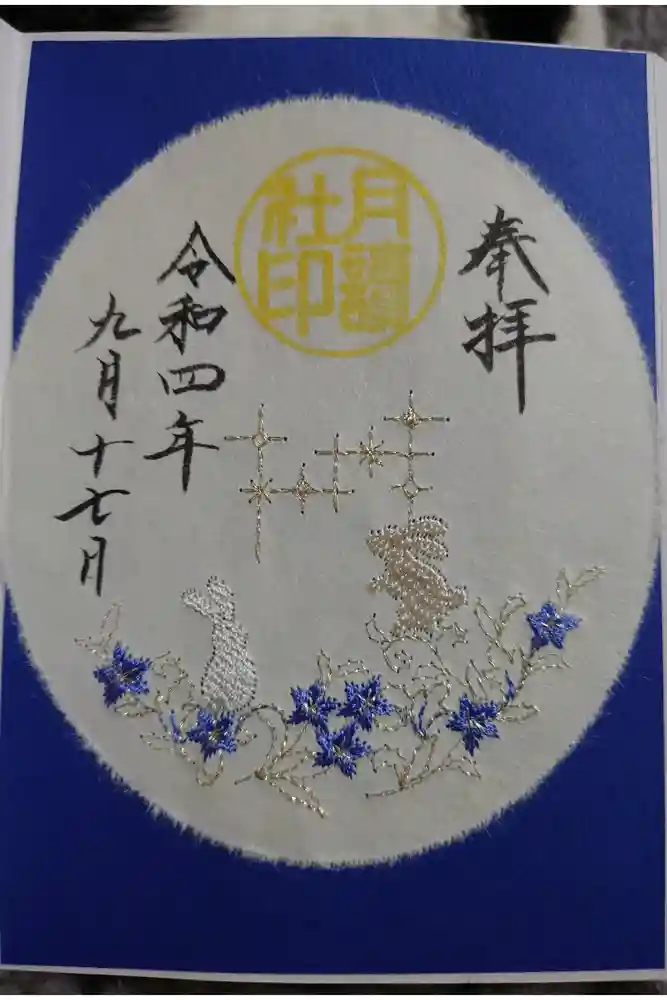 奉拝
月讀
社印
令和四年
九月十七月